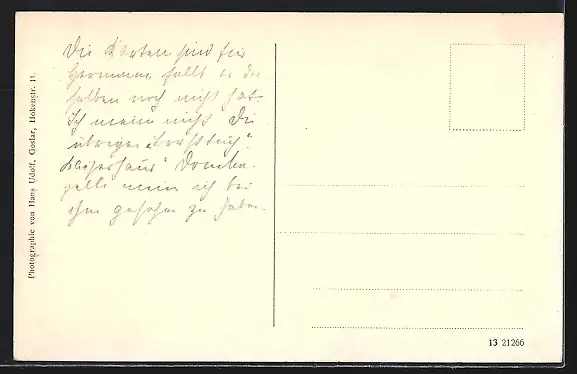 Die Karten sind für
Hermann falls er die
selben noch nicht hat.
Ich meine nicht die
übrigen
Kaiserhaus" Domka-
pelle mein ich bei
ihm gesehn zu haben.
Photographie von Hans Udolf, Goslar, Hokenstr. 11.
13 21266